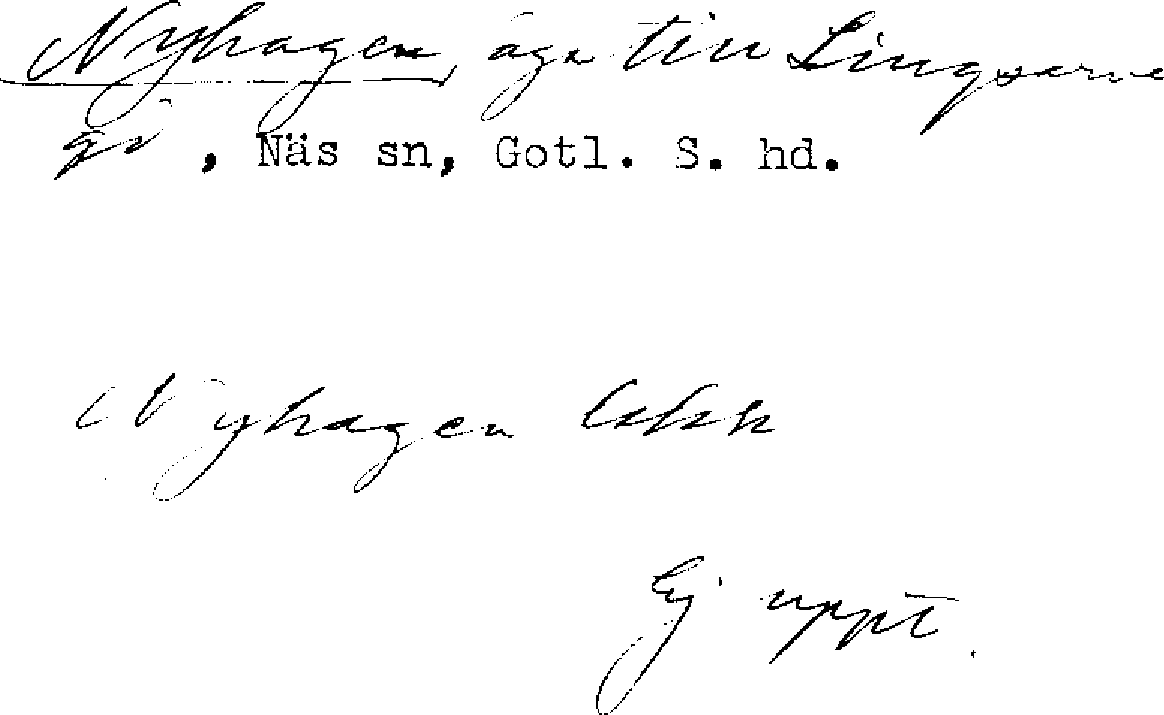 Nyhagen, äga till Lingsarve
gd, Näs sn, Gotl. S. hd.
Nyhagen
Ej uppt.